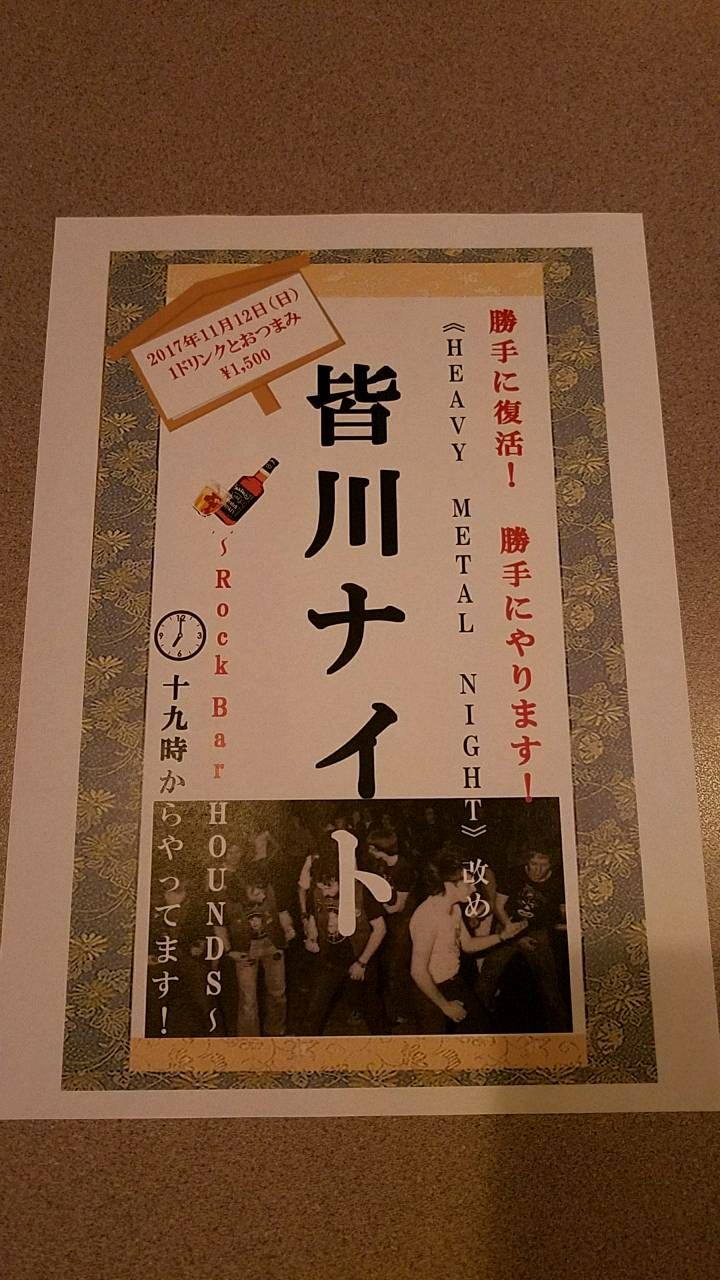 勝手に復活！　勝手にやります！
《HEAVY METAL NIGHT》改め
皆川ナイト
2017年11月12日(日)
1ドリンクとおつまみ
¥1,500
～Rock Bar HOUNDS～
十九時からやってます！